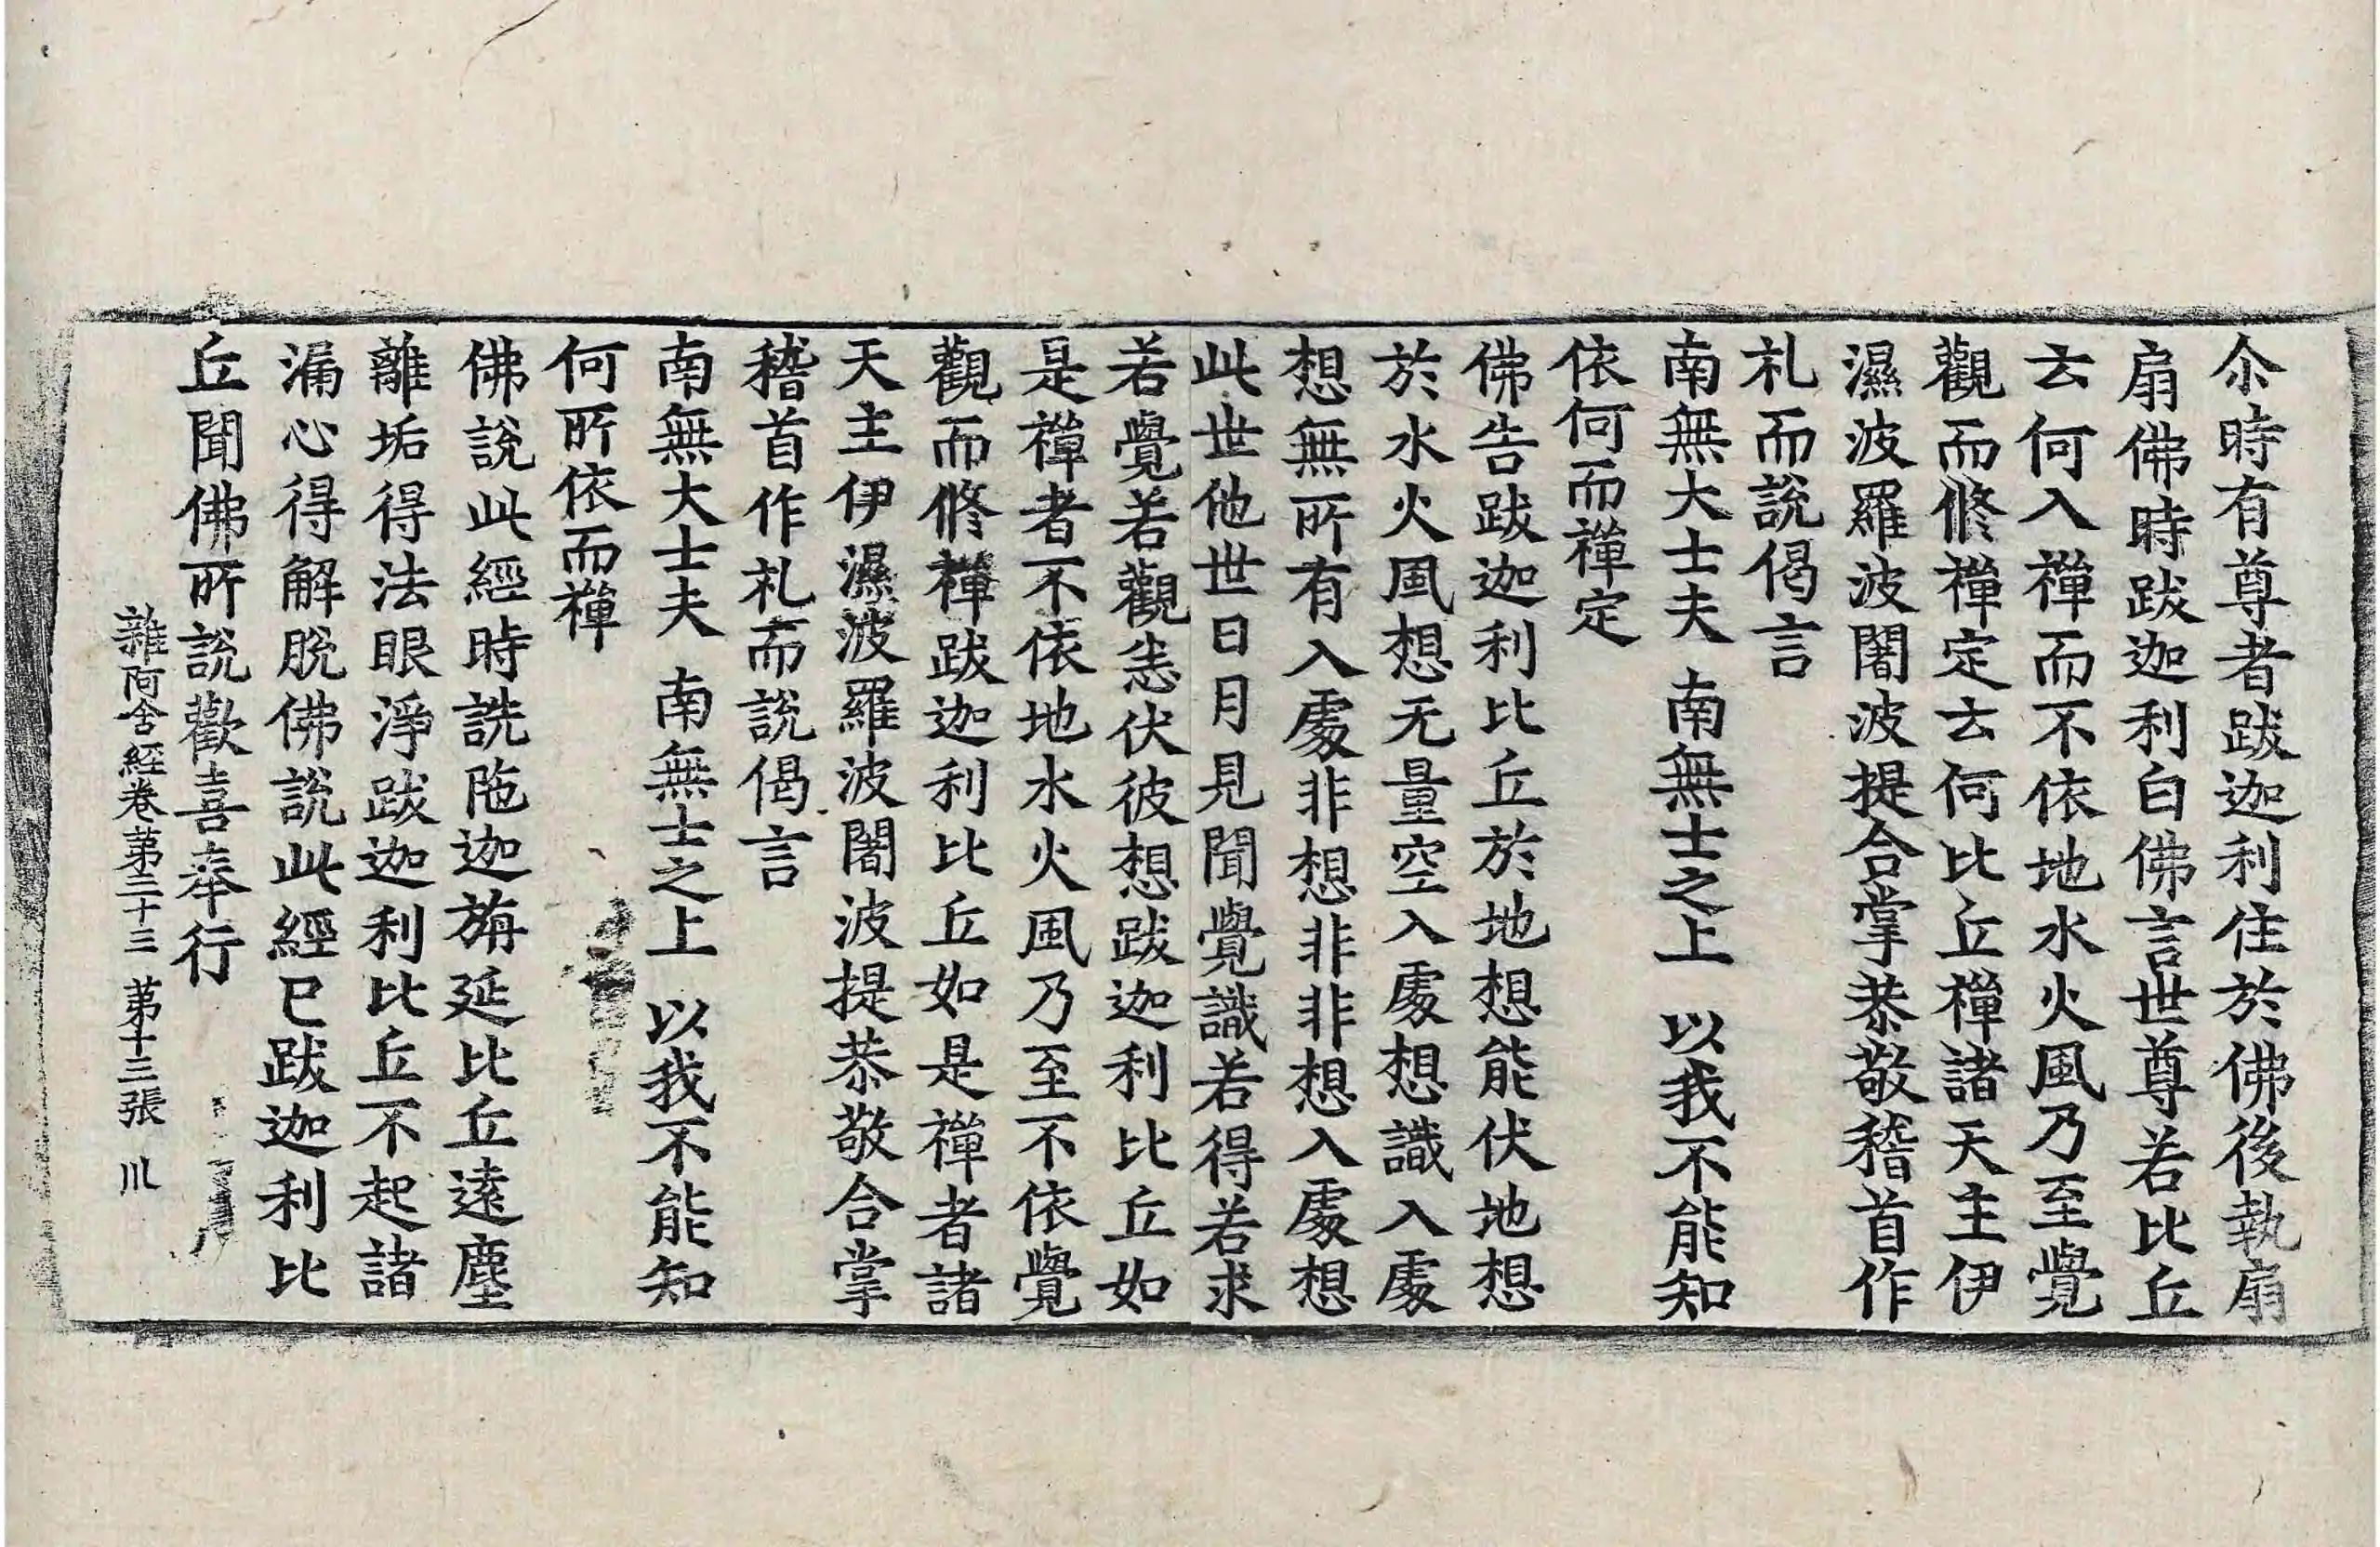 尒時有尊者跋迦利住於佛後執扇
扇佛時跋迦利白佛言世尊若比丘
云何入禪而不依地水火風乃至覺
觀而修禪定云何比丘禪諸天主伊
濕波羅波闍波提合掌恭敬稽首作
礼而說偈言
南無大士夫 南無士之上 以我不能知
依何而禪定
佛告跋迦利比丘於地想能伏地想
於水火風想无量空入處想識入處
想無所有入處非想非非想入處想
此世他世日月見聞覺識若得若求
若覺若觀悉伏彼想跋迦利比丘如
是禪者不依地水火風乃至不依覺
觀而修禪跋迦利比丘如是禪者諸
天主伊濕波羅波闍波提恭敬合掌
稽首作礼而說偈言
南無大士夫 南無士之上 以我不能知
何所依而禪
佛說此經時詵陁迦旃延比丘遠塵
離垢得法眼淨跋迦利比丘不起諸
漏心得解脫佛說此經已跋迦利比
丘聞佛所說歡喜奉行
雜阿含經卷第三十三 第十三張 川